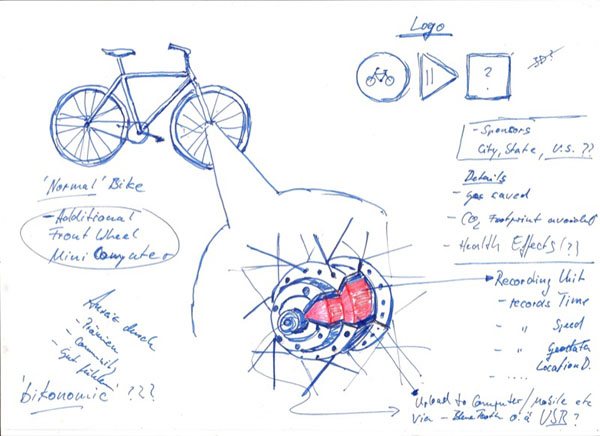 Logo
?
3D?
- Sponsors
City, State, U.S. ??
Details
- gas saved
- CO2 Footprint avoided
- Health Effects (?)
'Normal' Bike
- Additional
Front Wheel
Mini Computer
Recording Unit
- records Time
- " Speed
- " Geodata
Location D.
- .....
durch
-
- Community
- Gut fühlen
'bikonomic' ???
Upload to Computer / Mobile etc
via - BlueTooth o.ä USB ?